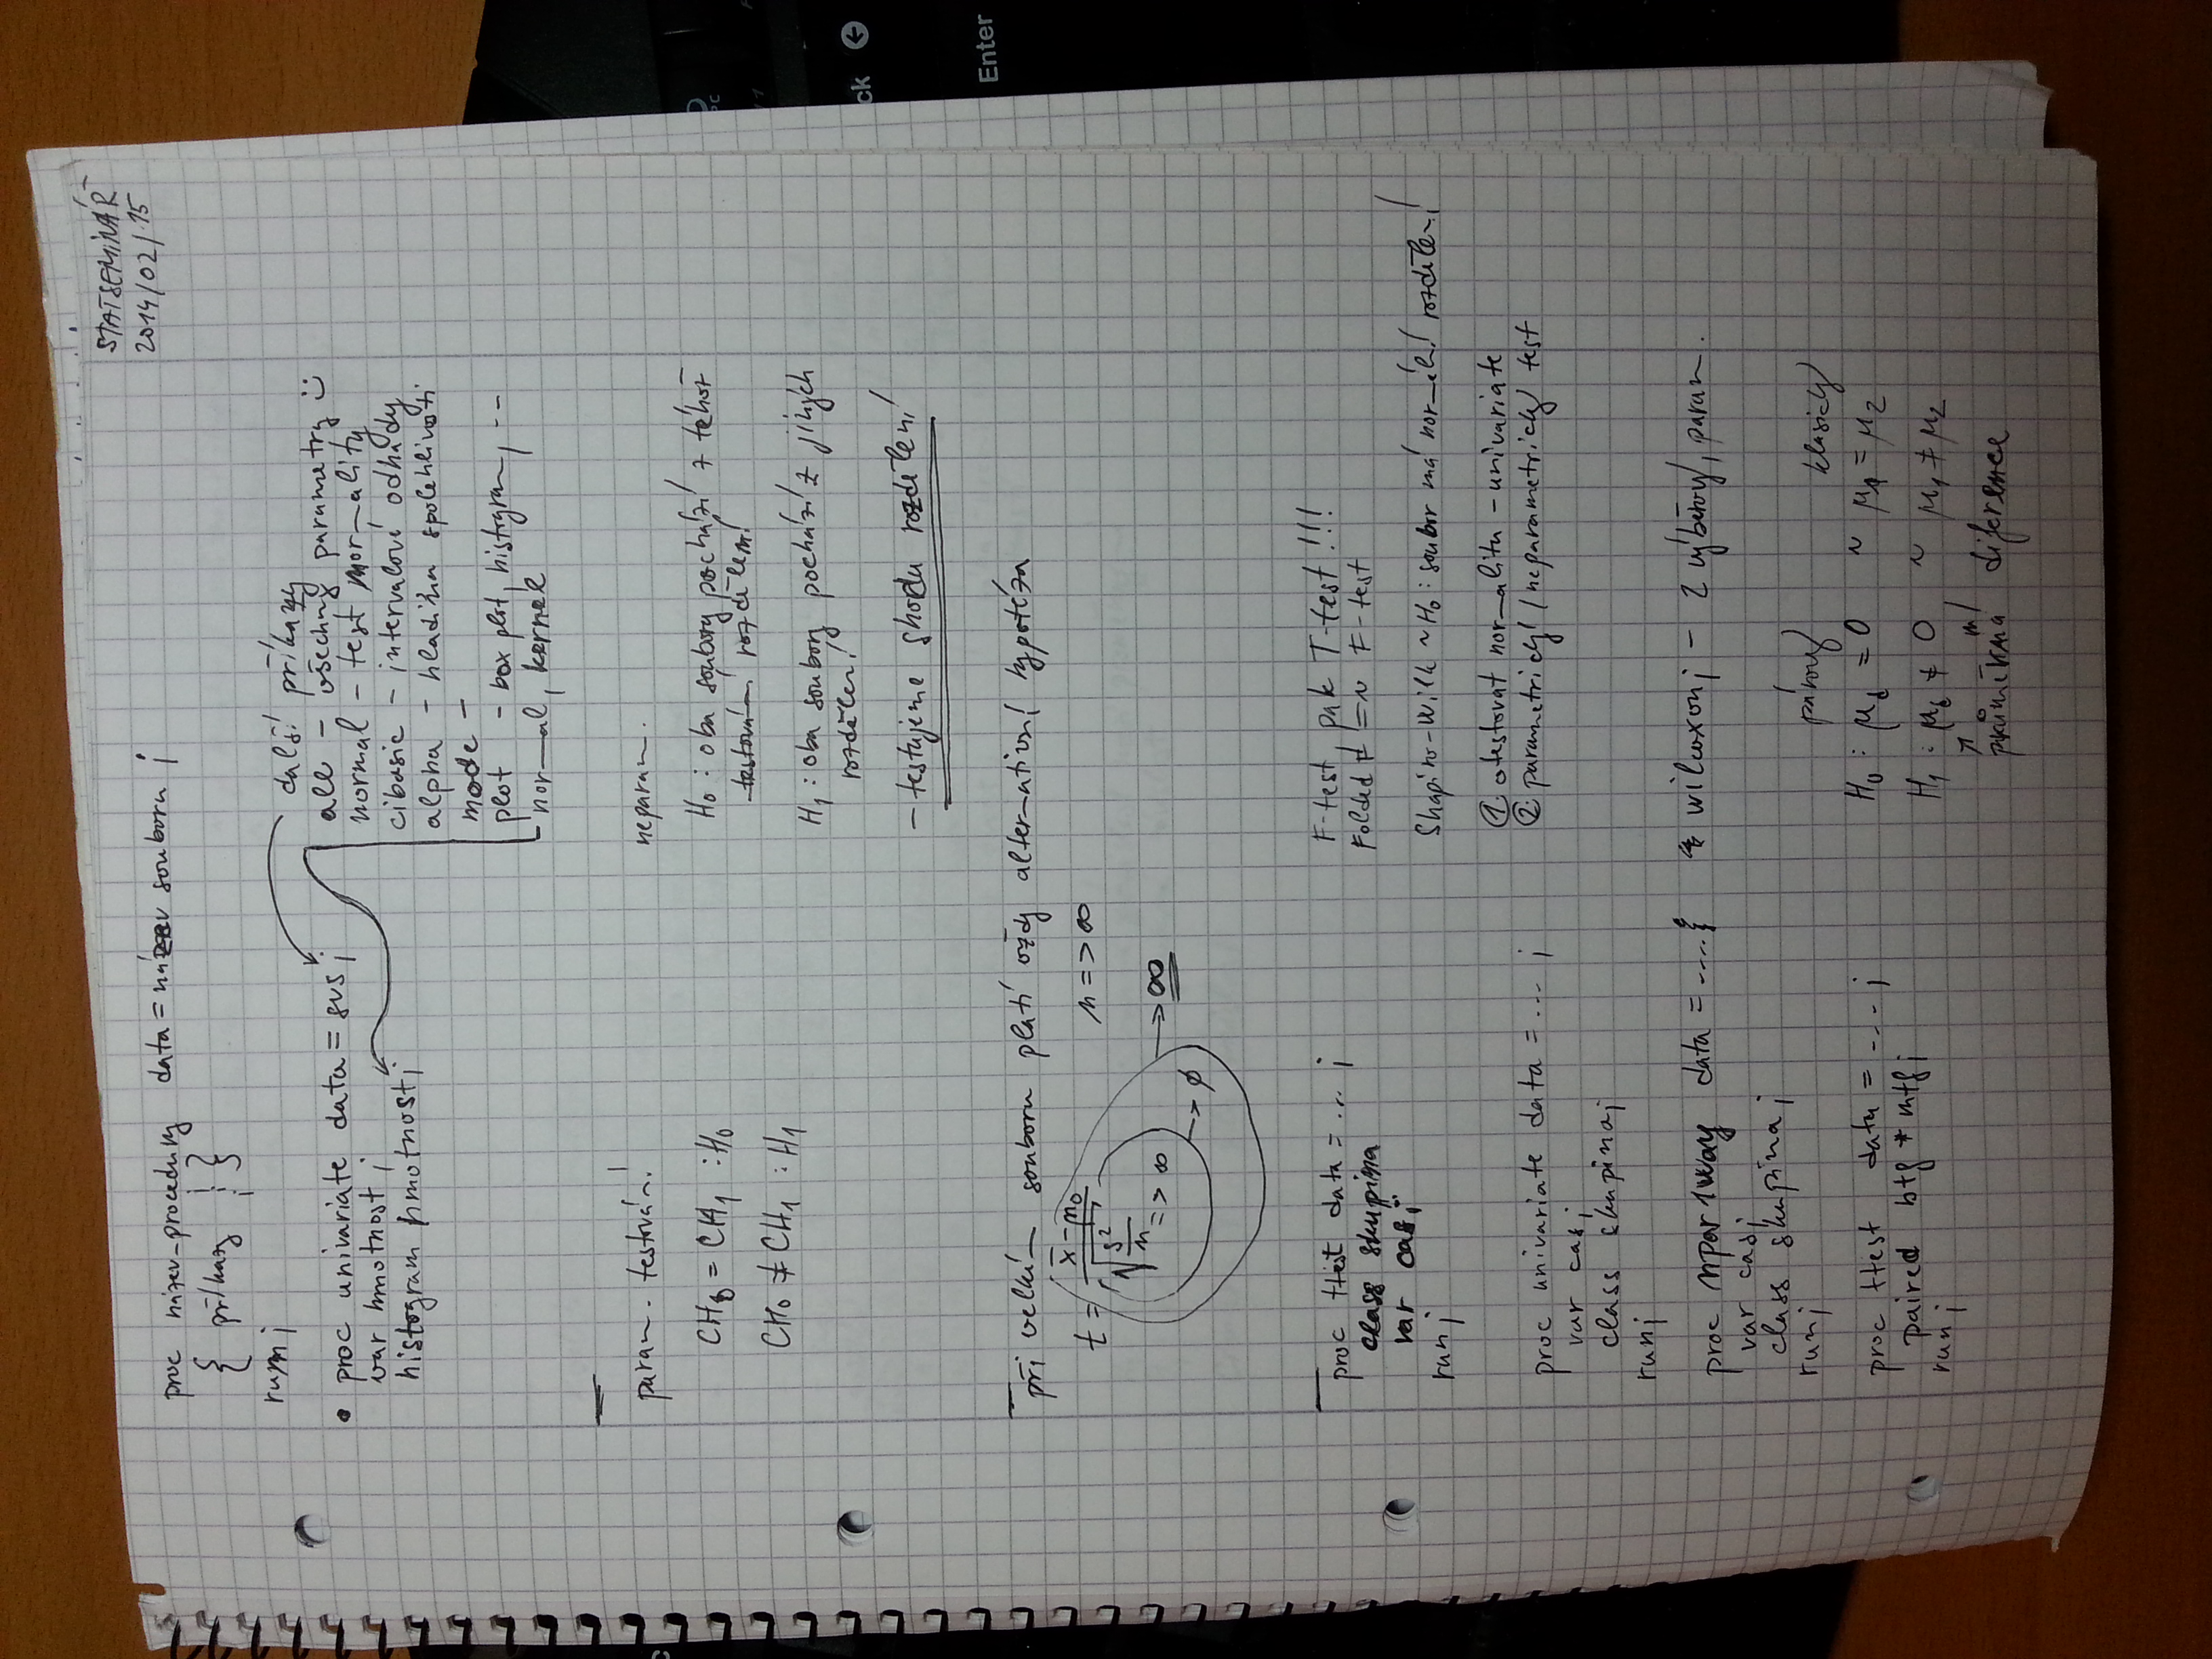 STATSEMINÁŘ
2014/02/15
proc název-procedury data = název souboru;
{ příkazy ; }
run;
• proc univariate data = svs;
var hmotnost;
histogram hmotnost;
další příkazy
all - všechny parametry :)
normal - test normality
cibasic - intervalové odhady
alpha - hladina spolehlivosti
mode -
plot - box plot, histogram, ...
normal, kernel
param. testování
CH0 = CH1 : H0
CH0 ≠ CH1 : H1
neparam.
H0: oba soubory pochází z téhož
testování rozdělení
H1: oba soubory pochází z jiných
rozdělení
- testujeme shodu rozdělení
při velkém souboru platí vždy alternativní hypotéza
n => ∞
t = (x̄ - m0) / √(s²/n) -> ∞
n => ∞ -> ∅
proc ttest data = ... ;
class skupina
var cas;
run;
F-test pak T-test !!!
Folded F = ~ F-test
Shapiro-Wilk ~ H0: soubor má normální rozdělení
① otestovat normalitu - univariate
② parametrický/neparametrický test
proc univariate data = ... ;
var cas;
class skupina;
run;
proc npar1way data = ....;
var cas;
class skupina;
run;
* wilcoxon; - 2 výběrový, param.
proc ttest data = ... ;
paired htf * mtf;
run;
párový klasický
H0: μd = 0 ~ μ1 = μ2
H1: μd ≠ 0 ~ μ1 ≠ μ2
↑
průměrná diference